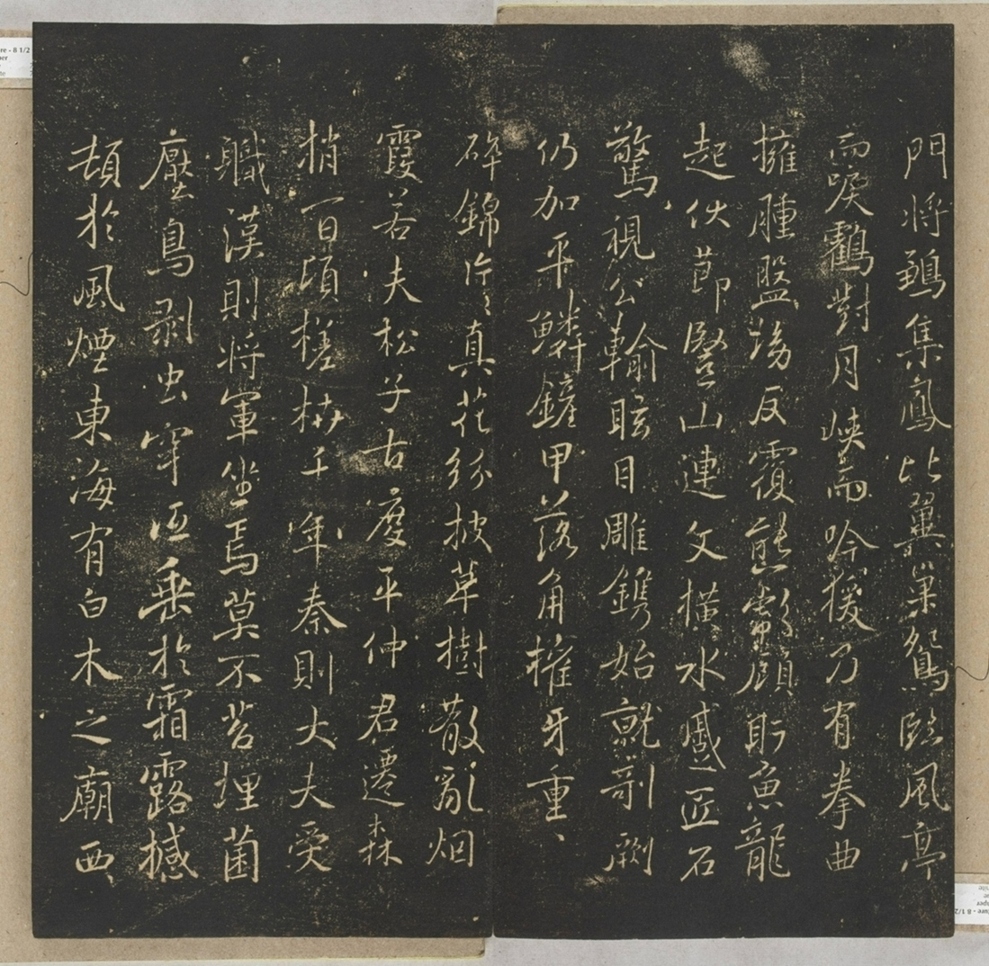 門將鶵集鳳比翼巢鴛臨風亭
而唳鸖對月峽而吟猨乃有拳曲
擁腫盤坳反覆熊彪顧盻魚龍
起伏節豎山連文橫水蹙匠石
驚視公輸眩目雕鐫始就剞劂
仍加平鱗鏟甲落角摧牙重〻
碎錦片〻真花紛披草樹散亂烟
霞若夫松子古度平仲君遷森
梢百頃槎枿千年秦則大夫受
職漢則將軍坐焉莫不苔埋菌
壓鳥剥虫穿低垂於霜露撼
頓於風煙東海有白木之廟西